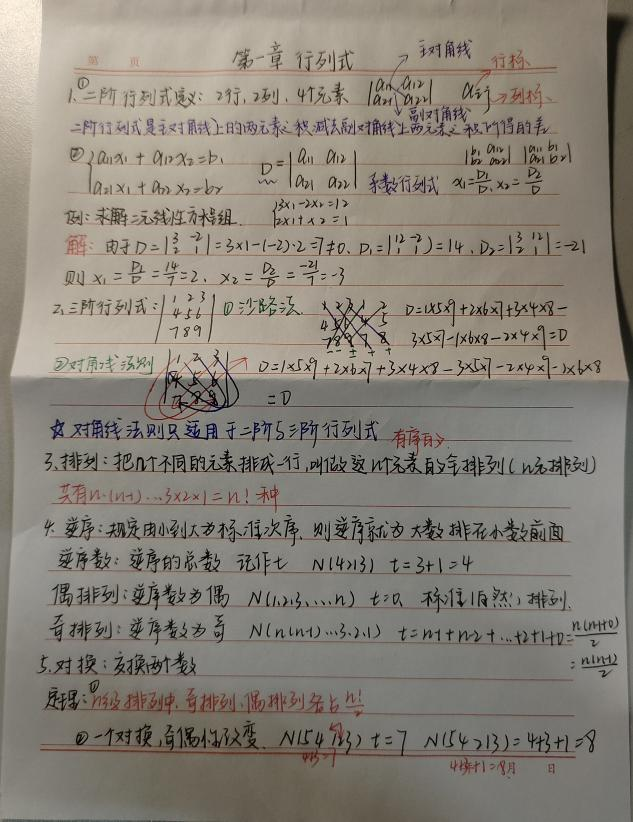 第 页
第一章 行列式
主对角线
行标
1. ①二阶行列式定义: 2行, 2列, 4个元素 |a₁₁ a₁₂ a₂₁ a₂₂| aᵢⱼ 列标
副对角线
二阶行列式是主对角线上的两元素之积减去副对角线上两元素之积所得的差
② {a₁₁x₁ + a₁₂x₂ = b₁ D = |a₁₁ a₁₂ |b₁ a₁₂ b₂ a₂₂| |a₁₁ b₁ a₂₁ b₂|
a₂₁x₁ + a₂₂x₂ = b₂ a₂₁ a₂₂| 系数行列式 x₁ = D₁/D, x₂ = D₂/D
例: 求解二元线性方程组 {3x₁-2x₂=12 2x₁+x₂=1
解: 由于D=|3 -2 2 1|=3×1-(-2)·2=7≠0, D₁=|12 -2 1 1|=14, D₂=|3 12 2 1|=-21
则 x₁ = D₁/D = 14/7 = 2, x₂ = D₂/D = -21/7 = -3
2. 三阶行列式: |1 2 3 4 5 6 7 8 9| ①沙路法 1 2 3 1 2 4 5 6 4 5 7 8 9 7 8 D=1×5×9+2×6×7+3×4×8-
- - + + + 3×5×7-1×6×8-2×4×9=0
②对角线法则 |1 2 3 4 5 6 7 8 9| D=1×5×9+2×6×7+3×4×8-3×5×7-2×4×9-1×6×8
=0
☆对角线法则只适用于二阶与三阶行列式
有序的
3. 排列: 把n个不同的元素排成一行, 叫做这n个元素的全排列(n元排列)
共有n·(n-1)…3×2×1=n!种
4. 逆序: 规定由小到大为标准次序, 则逆序就为大数排在小数前面
逆序数: 逆序的总数 记作t N(4213) t=3+1=4
偶排列: 逆序数为偶 N(1,2,3,…n) t=0 标准(自然)排列
奇排列: 逆序数为奇 N(n(n-1)…3·2·1) t=n-1+n-2+…+2+1+0=n(n-1+0)/2
=n(n-1)/2
5. 对换: 交换两个数
定理: ①n级排列中, 奇排列、偶排列各占n!/2
②一个对换, 奇偶性改变. t=7 N(54213)=4+3+1=8
月 日